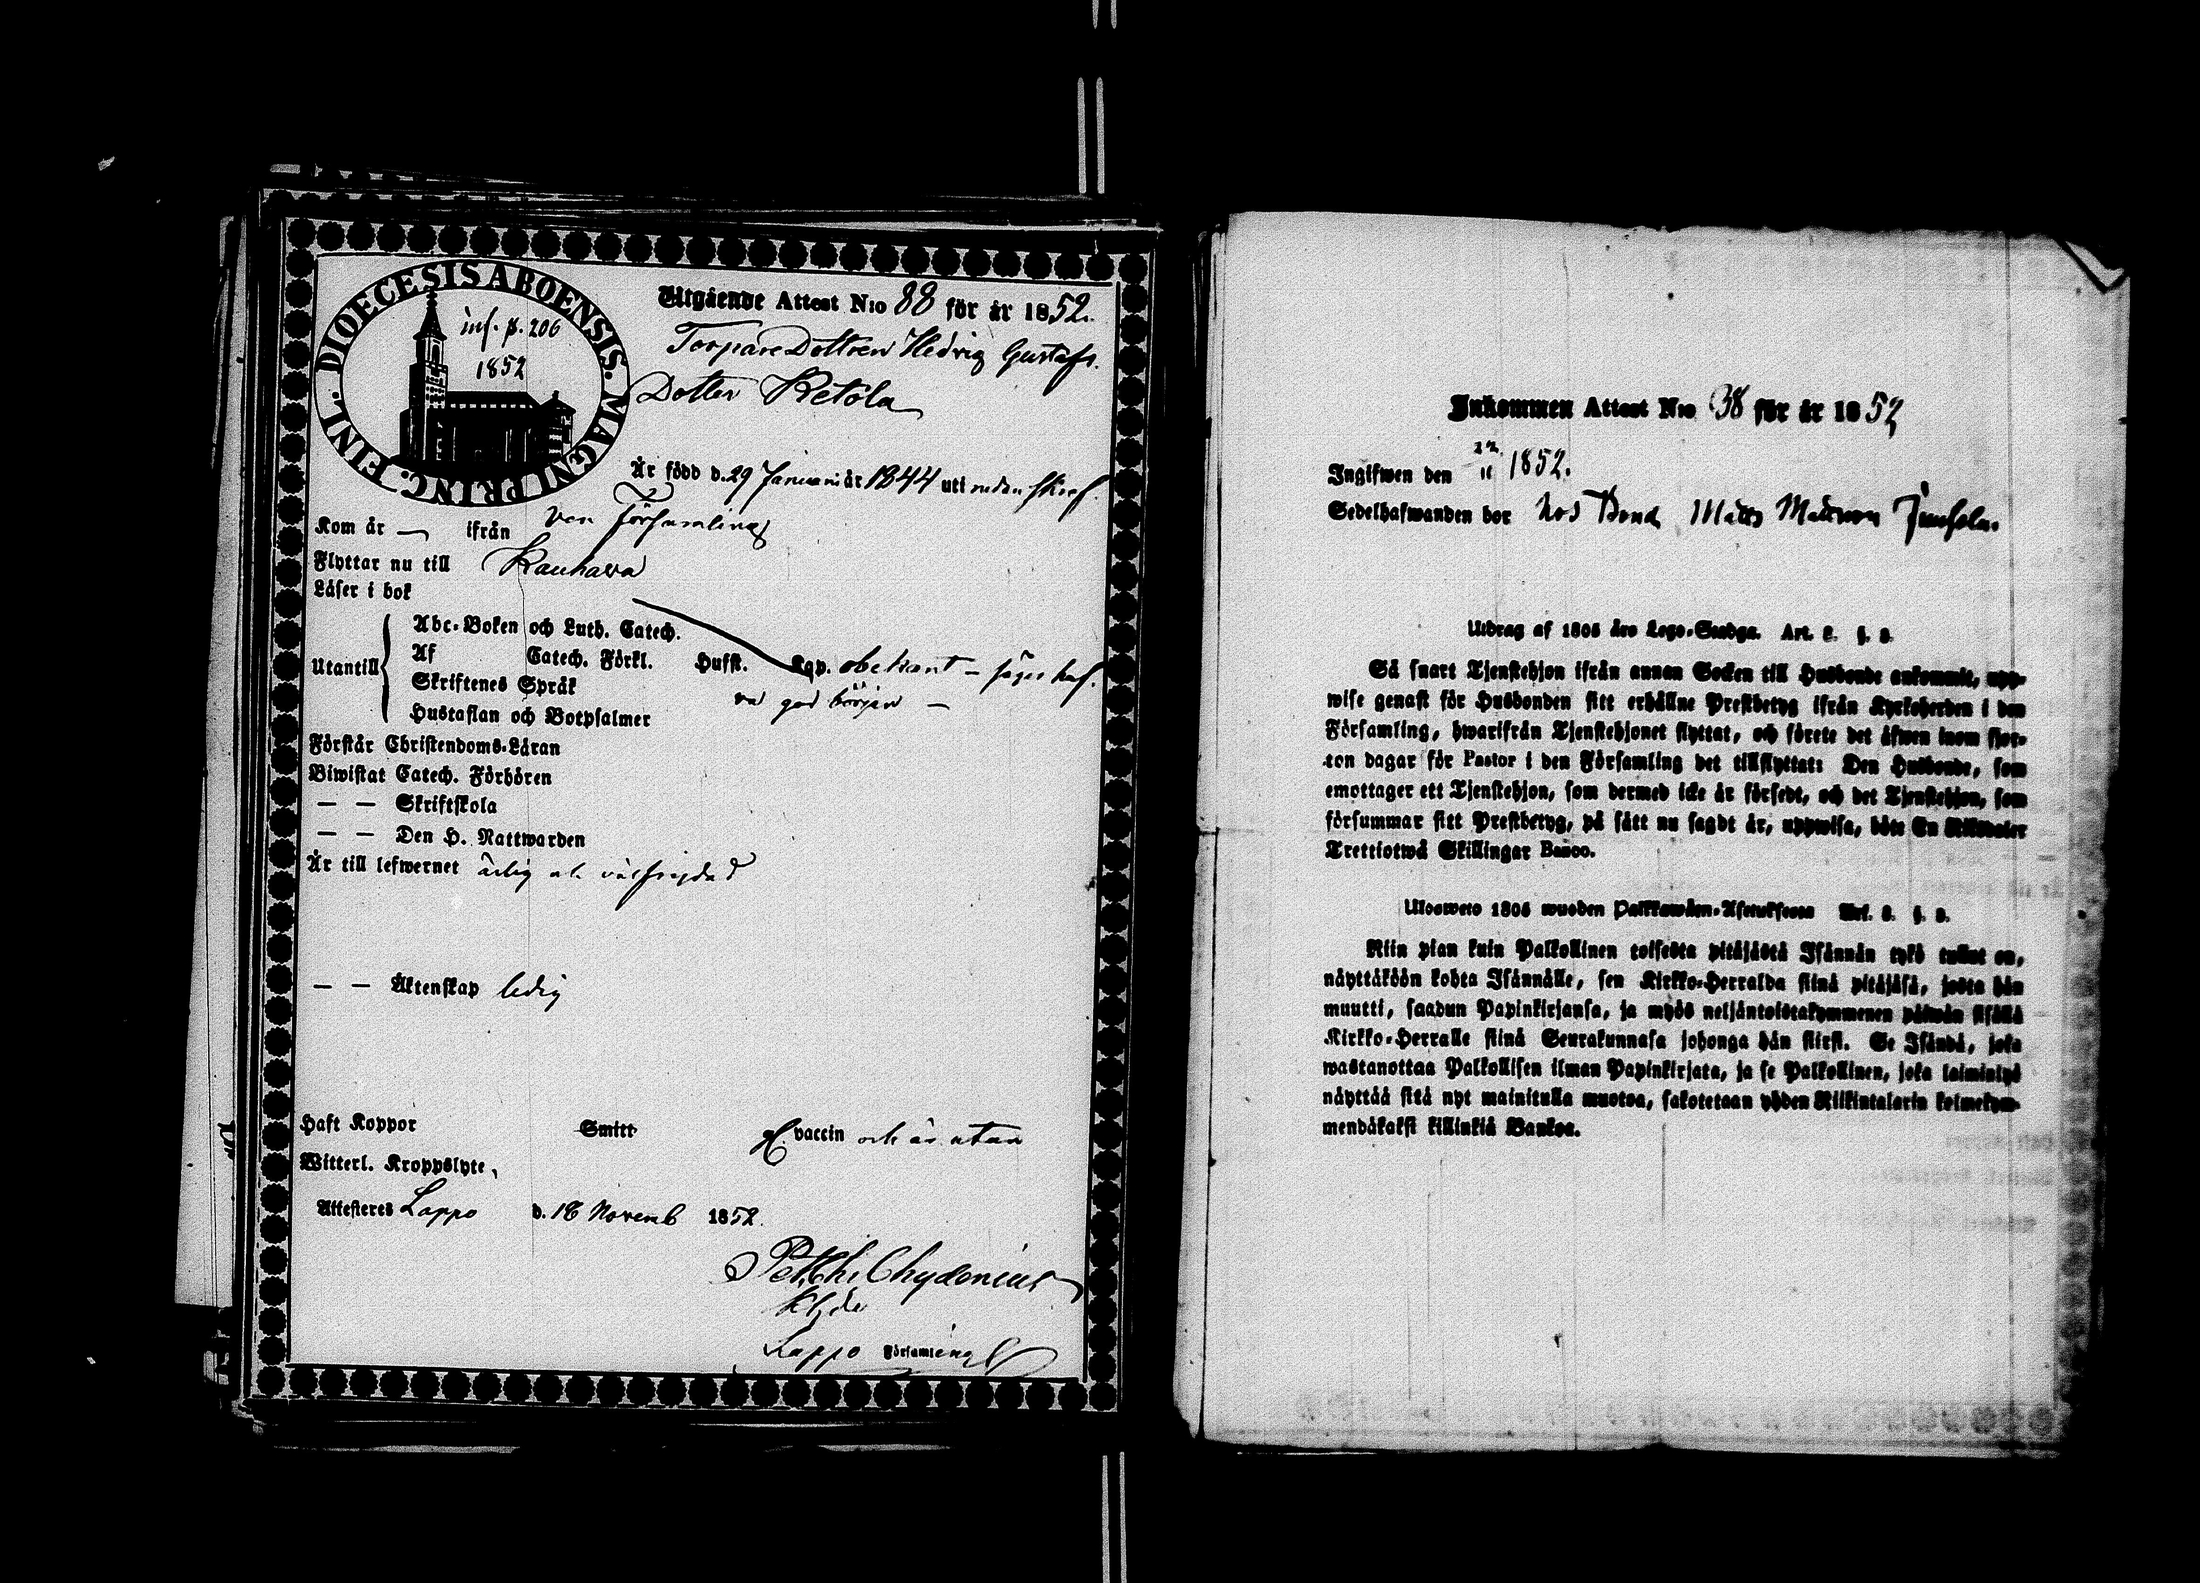 DIOECESIS ABOENSIS. MAGNI PRINC. FINL.
inf. p. 206
1852
Utgående Attest N:o 88 för år 1852.
Torpare Dottren Hedvig Gustafs
Dotter Ketola
Är född d. 29 Januari år 1844 uti nedan skref.
Kom år — ifrån
Församling
Flyttar nu till Kauhava
Läser i bok
Utantill
Abc-Boken och Luth. Catech.
Af Catech. Förkl. Hufst. Cap. obekant — säges haf.
va god början —
Skriftenes Språk
Hustaflan och Botpsalmer
Förstår Christendoms-Läran
Biwistat Catech. Förhören
— — Skriftskola
— — Den H. Nattwarden
Är till lefwernet ärlig och välfrejdad
— — Äktenskap ledig
Haft Koppor Smitt vaccin och är utan
Witterl. Kroppslyte,
Attesteres Lappo d. 18 Novemb 1852.
Chydenius
Lappo Församling
Inkommen Attest N:o 38 för år 1852
Ingifwen den 22/11 1852.
Sedelhafwanden bor hos Bond Matts Mattson
Utdrag af 1805 års Lego-Stadga. Art. §.
Så snart Tjenstehjon ifrån annan Socken till Husbonde ankommit, upp-
wise genast för Husbonden sitt erhållne Prestbetyg ifrån Kyrkoherden i den
Församling, hwarifrån Tjenstehjonet flyttat, och förete det äfwen inom fjor-
ton dagar för Pastor i den Församling det tillflyttat: Den Husbonde, som
emottager ett Tjenstehjon, som dermed icke är försedt, och det Tjenstehjon, som
försummar sitt Prestbetyg, på sätt nu sagdt är, uppwisa, böte En Riksdaler
Trettiotwå Skillingar Banco.
Uloswето 1805 wuoden Palkkawäen-Asetuksesta Art. §.
Niin pian kuin Palkollinen toisesta pitäjästä Isännän tykö tullut on,
näyttäköön kohta Isännälle, sen Kirkko-Herralda siinä pitäjäsä, josta hän
muutti, saadun Papinkirjansa, ja myös neljäntoistakymmenen päiwän sisällä
Kirkko-Herralle siinä Seurakunnasa johonga hän siirsi. Se Isändä, joka
wastanottaa Palkollisen ilman Papinkirjata, ja se Palkollinen, joka laiminlyö
näyttää sitä nyt mainitulla muotoa, sakotetaan yhden Riikintalarin kolmekym-
mendäkaksi killinkiä Bankoa.